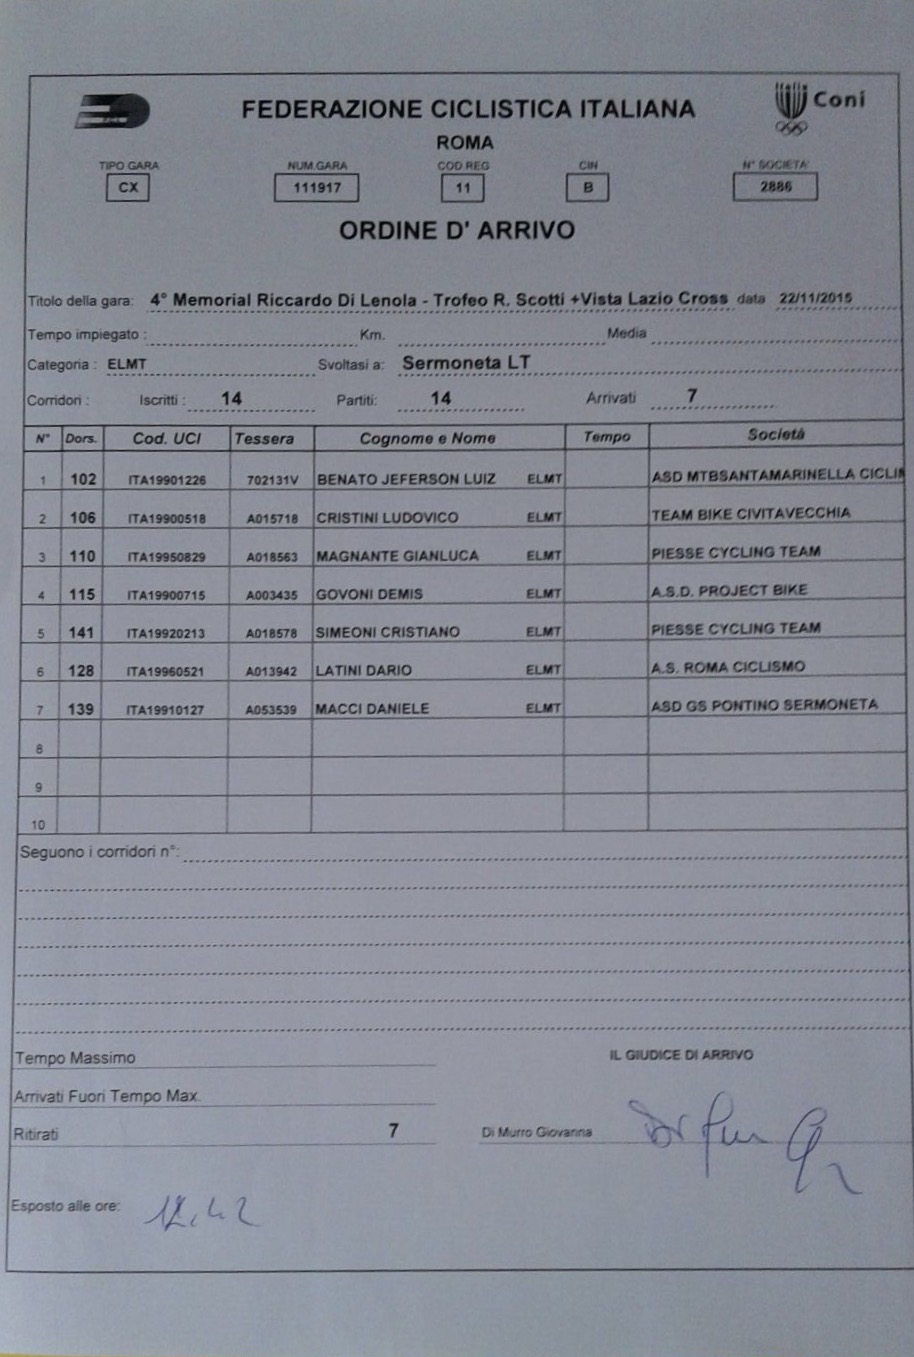 FEDERAZIONE CICLISTICA ITALIANA
Coni
ROMA
TIPO GARA NUM.GARA COD.REG CIN N° SOCIETA'
CX 111917 11 B 2886
ORDINE D' ARRIVO
Titolo della gara: 4° Memorial Riccardo Di Lenola - Trofeo R. Scotti +Vista Lazio Cross data 22/11/2015
Tempo impiegato : Km. Media
Categoria : ELMT Svoltasi a: Sermoneta LT
Corridori : Iscritti : 14 Partiti: 14 Arrivati 7
N° Dors. Cod. UCI Tessera Cognome e Nome Tempo Società
1 102 ITA19901226 702131V BENATO JEFERSON LUIZ ELMT ASD MTBSANTAMARINELLA CICLIM
2 106 ITA19900518 A015718 CRISTINI LUDOVICO ELMT TEAM BIKE CIVITAVECCHIA
3 110 ITA19950829 A018563 MAGNANTE GIANLUCA ELMT PIESSE CYCLING TEAM
4 115 ITA19900715 A003435 GOVONI DEMIS ELMT A.S.D. PROJECT BIKE
5 141 ITA19920213 A018578 SIMEONI CRISTIANO ELMT PIESSE CYCLING TEAM
6 128 ITA19960521 A013942 LATINI DARIO ELMT A.S. ROMA CICLISMO
7 139 ITA19910127 A053539 MACCI DANIELE ELMT ASD GS PONTINO SERMONETA
8
9
10
Seguono i corridori n°:
Tempo Massimo IL GIUDICE DI ARRIVO
Arrivati Fuori Tempo Max.
Ritirati 7 Di Murro Giovanna
Esposto alle ore: 12.42